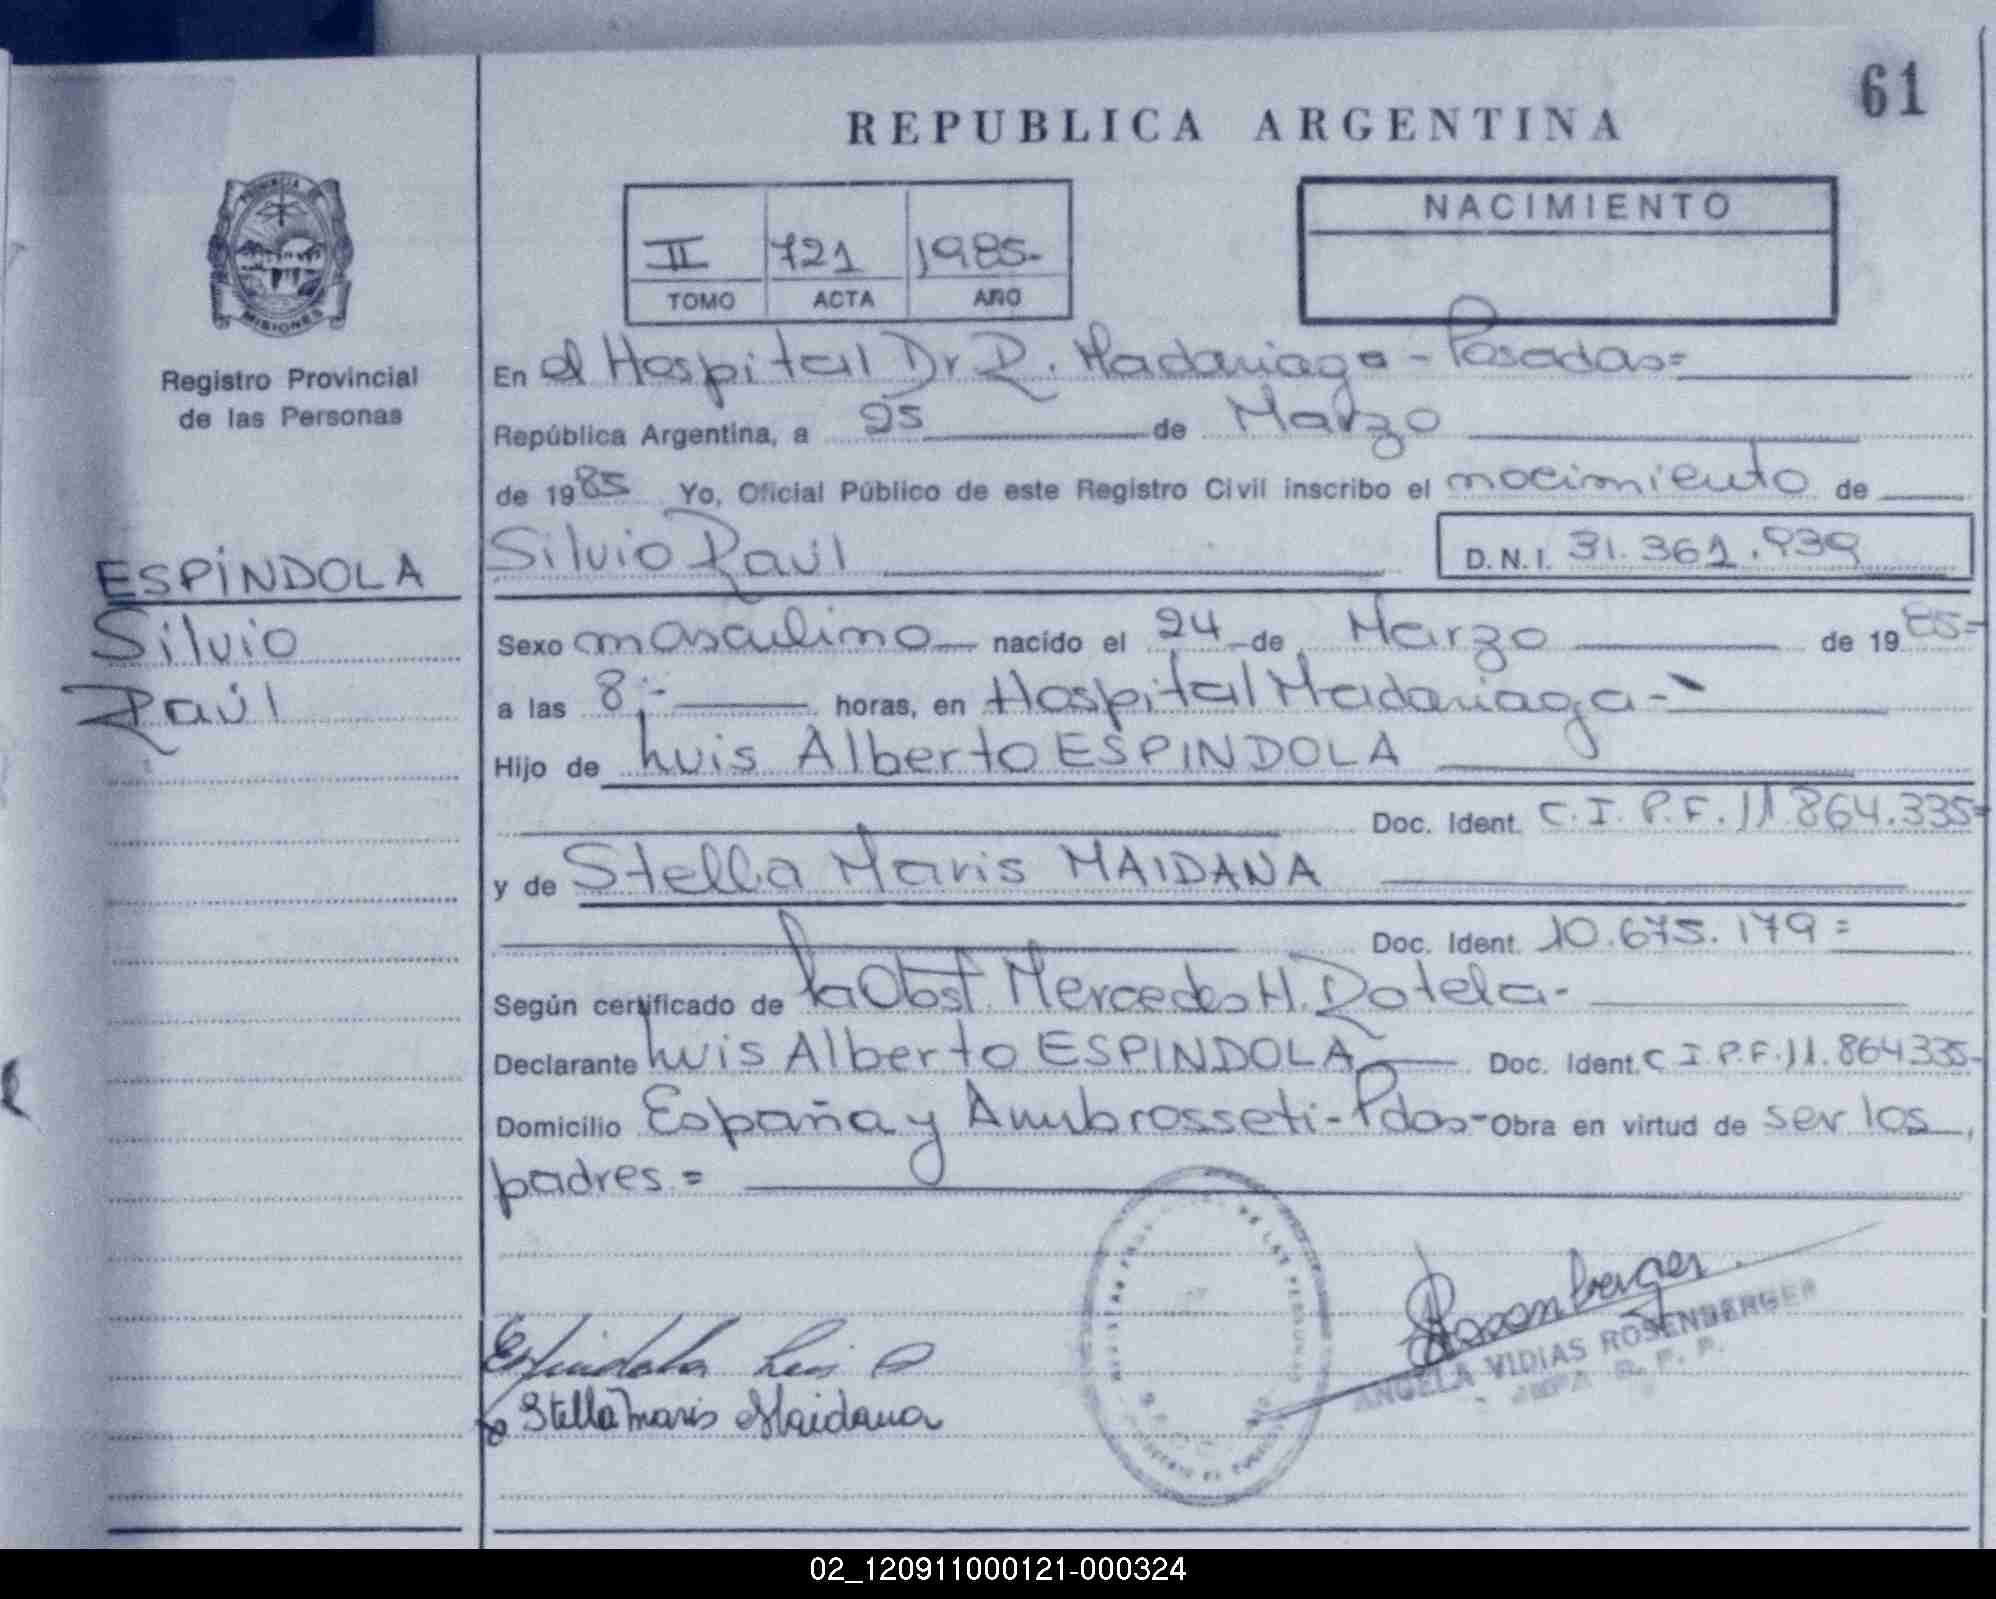 61
REPUBLICA ARGENTINA
PROVINCIA DE
MISIONES
Registro Provincial
de las Personas
ESPÍNDOLA
Silvio
Raúl
II 721 1985-
TOMO ACTA AÑO
NACIMIENTO
En el Hospital Dr R. Madariaga - Posadas=
República Argentina, a 25 de Marzo
de 1985 Yo, Oficial Público de este Registro Civil inscribo el nacimiento de
Silvio Raúl D.N.I. 31.361.939
Sexo masculino nacido el 24 de Marzo de 1985=
a las 8;- horas, en Hospital Madariaga-
Hijo de Luis Alberto ESPINDOLA
Doc. Ident. C.I.P.F. 11.864.335=
y de Stella Maris MAIDANA
Doc. Ident. 10.675.179=
Según certificado de la Obst. Mercedes H. Rotela-
Declarante Luis Alberto ESPINDOLA Doc. Ident. C I.P.F. 11.864335-
Domicilio España y Ambrosseti-Pdas- Obra en virtud de ser los
padres.=
Espindola Luis A
Stella Maris Maidana
Rosenberger
ANGELA VIDIAS ROSENBERGER
DE LAS PERSONAS
02_120911000121-000324